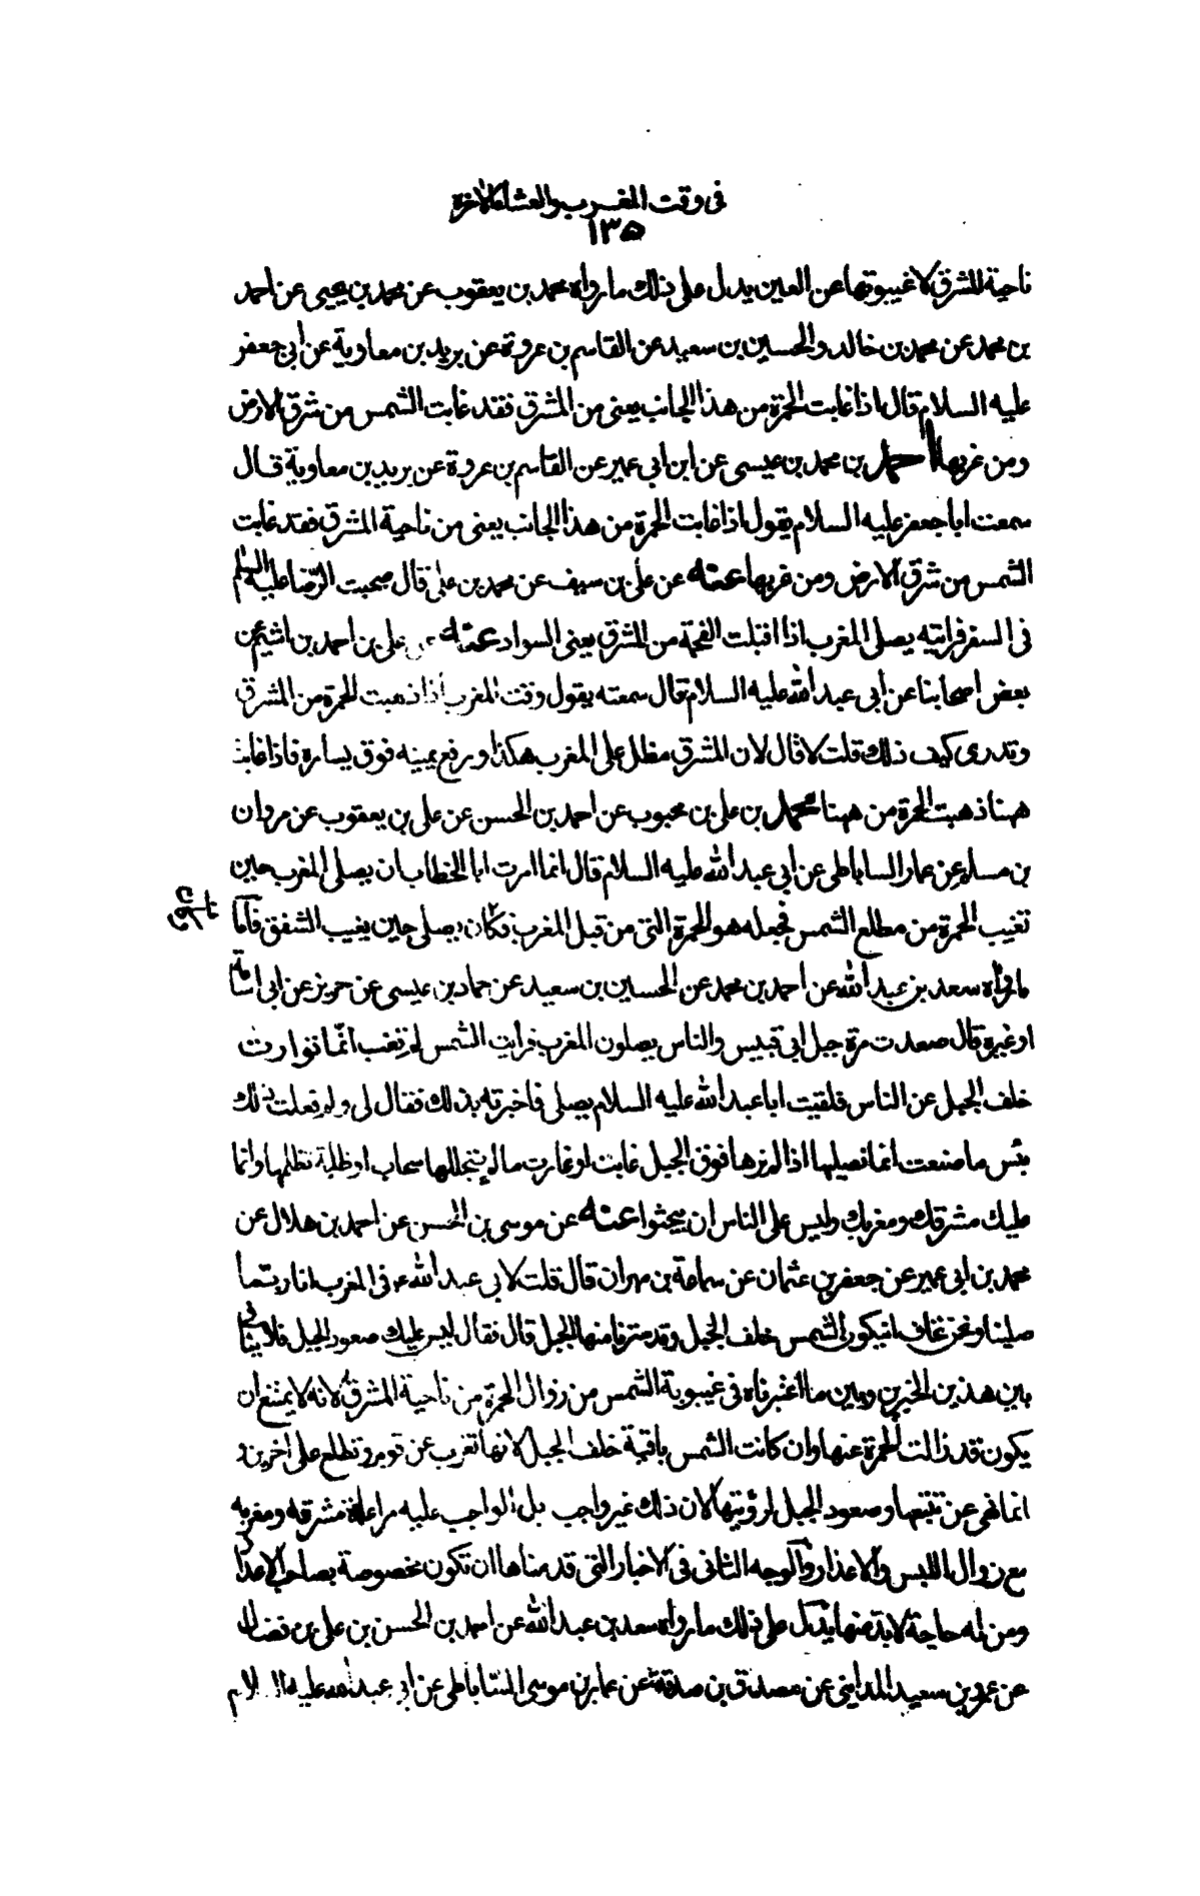 فى وقت المغرب والعشاء الاخرة
١٣٥
ناحية المشرق لا غيبوبتها عن العين يدل على ذلك ما رواه محمد بن يعقوب عن محمد بن يحيى عن احمد
بن محمد عن محمد بن خالد والحسين بن سعيد عن القاسم بن عروة عن بريد بن معاوية عن ابى جعفر
عليه السلام قال اذا غابت الحمرة من هذا الجانب يعنى من المشرق فقد غابت الشمس من شرق الارض
ومن غربها احمد بن محمد بن عيسى عن ابن ابى عمير عن القاسم بن عروة عن بريد بن معاوية قال
سمعت ابا جعفر عليه السلام يقول اذا غابت الحمرة من هذا الجانب يعنى من ناحية المشرق فقد غابت
الشمس من شرق الارض ومن غربها عنه عن على بن سيف عن محمد بن على قال صحبت الرضا عليه السلم
فى السفر فرايته يصلى المغرب اذا اقبلت الفحمة من المشرق يعنى السواد عنه عن على بن احمد بن اشيم عن
بعض اصحابنا عن ابى عبد الله عليه السلام قال سمعته يقول وقت المغرب اذا ذهبت الحمرة من المشرق
وتدرى كيف ذلك قلت لا قال لان المشرق مطل على المغرب هكذا ورفع يمينه فوق يساره فاذا غابت
هنا ذهبت الحمرة من ههنا محمد بن على بن محبوب عن احمد بن الحسن عن على بن يعقوب عن مروان
بن مسلم عن عمار الساباطى عن ابى عبد الله عليه السلام قال انما امرت ابا الخطاب ان يصلى المغرب حين
تغيب الحمرة من مطلع الشمس فجعله هو الحمرة التى من قبل المغرب فكان يصلى حين يغيب الشفق فاما
ما رواه سعد بن عبد الله عن احمد بن محمد عن الحسين بن سعيد عن حماد بن عيسى عن حريز عن ابى اسامة
او غيره قال صعدت مرة جبل ابى قبيس والناس يصلون المغرب فرايت الشمس لم تغب انما توارت
خلف الجبل عن الناس فلقيت ابا عبد الله عليه السلام يصلى فاخبرته بذلك فقال لى ولم فعلت ذلك
بئس ما صنعت انما تصليها اذا لم ترها فوق الجبل غابت او غارت ما لم يتجللها سحاب او ظلمة تظلمها وانما
عليك مشرقك ومغربك وليس على الناس ان يبحثوا عنه عن موسى بن الحسن عن احمد بن هلال عن
محمد بن ابى عمير عن جعفر بن عثمان عن سماعة بن مهران قال قلت لابى عبد الله ع فى المغرب انا ربما
صلينا ونحن نخاف ان يكون الشمس خلف الجبل وقد سترنا منها الجبل قال فقال ليس عليك صعود الجبل فلا ينافى
بين هذين الخبرين وبين ما اعتبرناه فى غيبوبة الشمس من زوال الحمرة من ناحية المشرق لانه لا يمتنع ان
يكون قد زالت الحمرة عنها وان كانت الشمس باقية خلف الجبل لانها تغرب عن قوم وتطلع على اخرين و
انما نهى عن تتبعها وصعود الجبل لرؤيتها لان ذلك غير واجب بل الواجب عليه مراعاة مشرقه ومغربه
مع زوال اللبس والاعذار والوجه الثانى فى الاخبار التى قدمناها ان تكون مخصوصة بصاحب الاعذار
ومن له حاجة لا بد منها يدل على ذلك ما رواه سعد بن عبد الله عن احمد بن الحسن بن على بن فضال
عن عمرو بن سعيد المداينى عن مصدق بن صدقة عن عمار بن موسى الساباطى عن ابى عبد الله عليه السلام